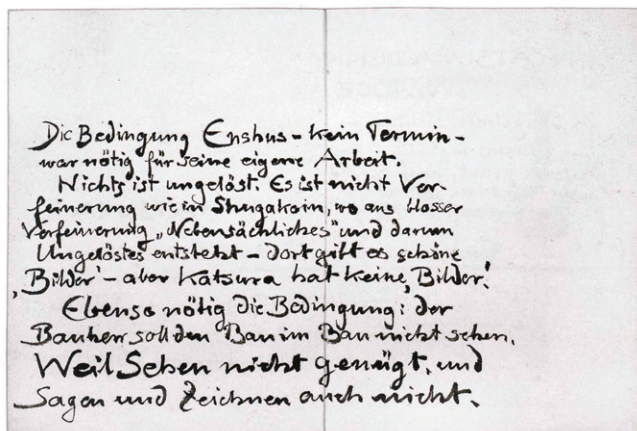 Die Bedingung Enshus – kein Termin –
war nötig für seine eigene Arbeit.
Nichts ist ungelöst. Es ist nicht Ver-
feinerung wie in Shugakuin, wo aus blosser
Verfeinerung „Nebensächliches" und darum
Ungelöstes entsteht – dort gibt es schöne
‚Bilder' – aber Katsura hat keine ‚Bilder'.
Ebenso nötig die Bedingung: der
Bauherr soll den Bau im Bau nicht sehen.
Weil Sehen nicht genügt, und
Sagen und Zeichnen auch nicht.